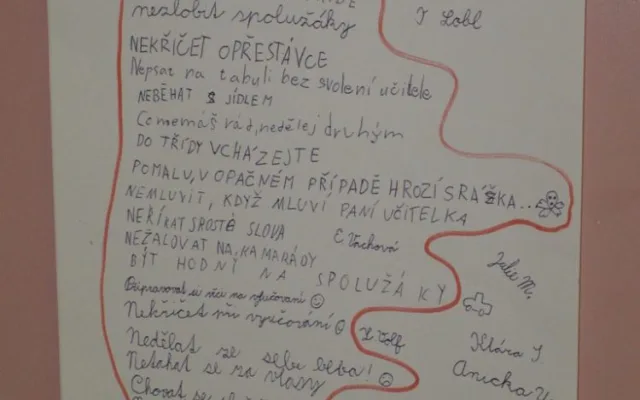 nezlobit spolužáky
T Lobl
NEKŘIČET OPŘESTÁVCE
Nepsat na tabuli bez svolení učitele
NEBĚHAT S JÍDLEM
Co nemáš rád, nedělej druhým
DO TŘÍDY VCHÁZEJTE
POMALU, V OPAČNÉM PŘÍPADĚ HROZÍ SRÁŽKA...
NEMLUVIT, KDYŽ MLUVÍ PANÍ UČITELKA
NEŘÍKAT SPROSTÉ SLOVA
E Vachová
NEŽALOVAT NA KAMARÁDY
BÝT HODNÍ NA SPOLUŽÁKY
Julie M.
Připravovat si věci na vyučování
Nekřičet při vyučování
V. Volf
Klára J
Nedělat ze sebe béba!
Netahat se za vlasy
Anička V.
Chovat se